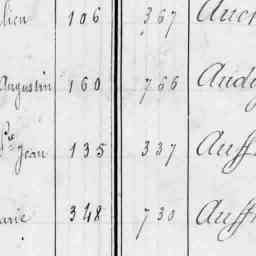 lien 106 367 Auc
Augustin 160 766 Audy
Ste Jean 135 337 Auff
arie 348 730 Auffr